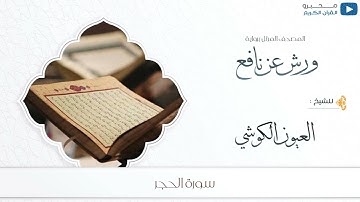 محبرو
القرآن الكريم
المصحف المرتل برواية
ورش عن نافع
للشيخ :
العيون الكوشي
سورة الحجر